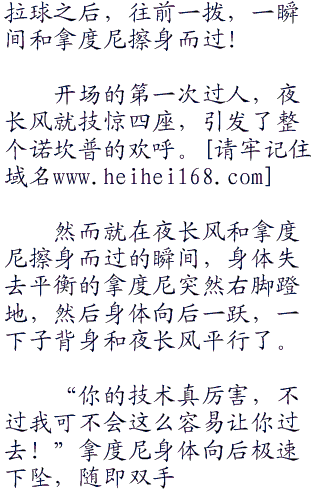 拉球之后，往前一拨，一瞬
间和拿度尼擦身而过！
开场的第一次过人，夜
长风就技惊四座，引发了整
个诺坎普的欢呼。[请牢记住
域名www.heihei168.com]
然而就在夜长风和拿度
尼擦身而过的瞬间，身体失
去平衡的拿度尼突然右脚蹬
地，然后身体向后一跃，一
下子背身和夜长风平行了。
“你的技术真厉害，不
过我可不会这么容易让你过
去！”拿度尼身体向后极速
下坠，随即双手